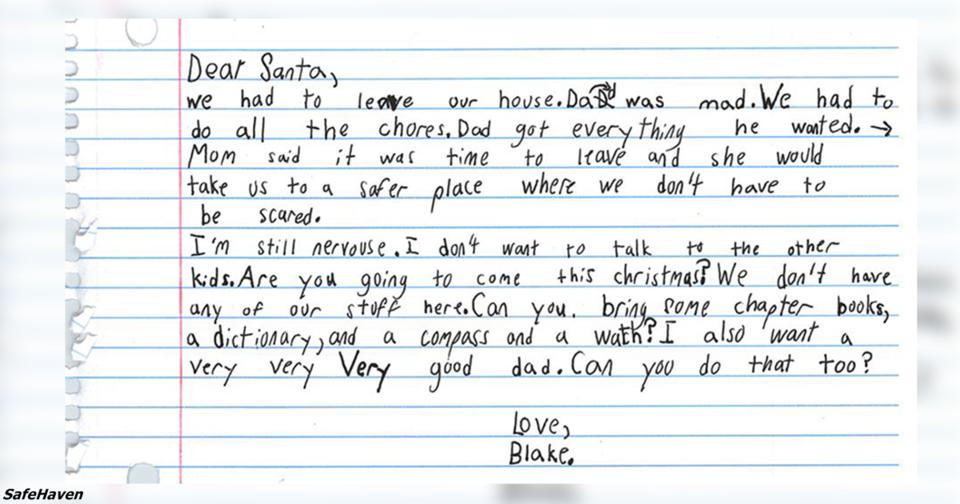 Dear Santa,
we had to leave our house. Dad was mad. We had to
do all the chores. Dad got everything he wanted. →
Mom said it was time to leave and she would
take us to a safer place where we don't have to
be scared.
I'm still nervouse. I don't want to talk to the other
kids. Are you going to come this christmas? We don't have
any of our stuff here. Can you. bring some chapter books,
a dictionary, and a compass and a wath? I also want a
very very Very good dad. Can you do that too?
Love,
Blake.
SafeHaven